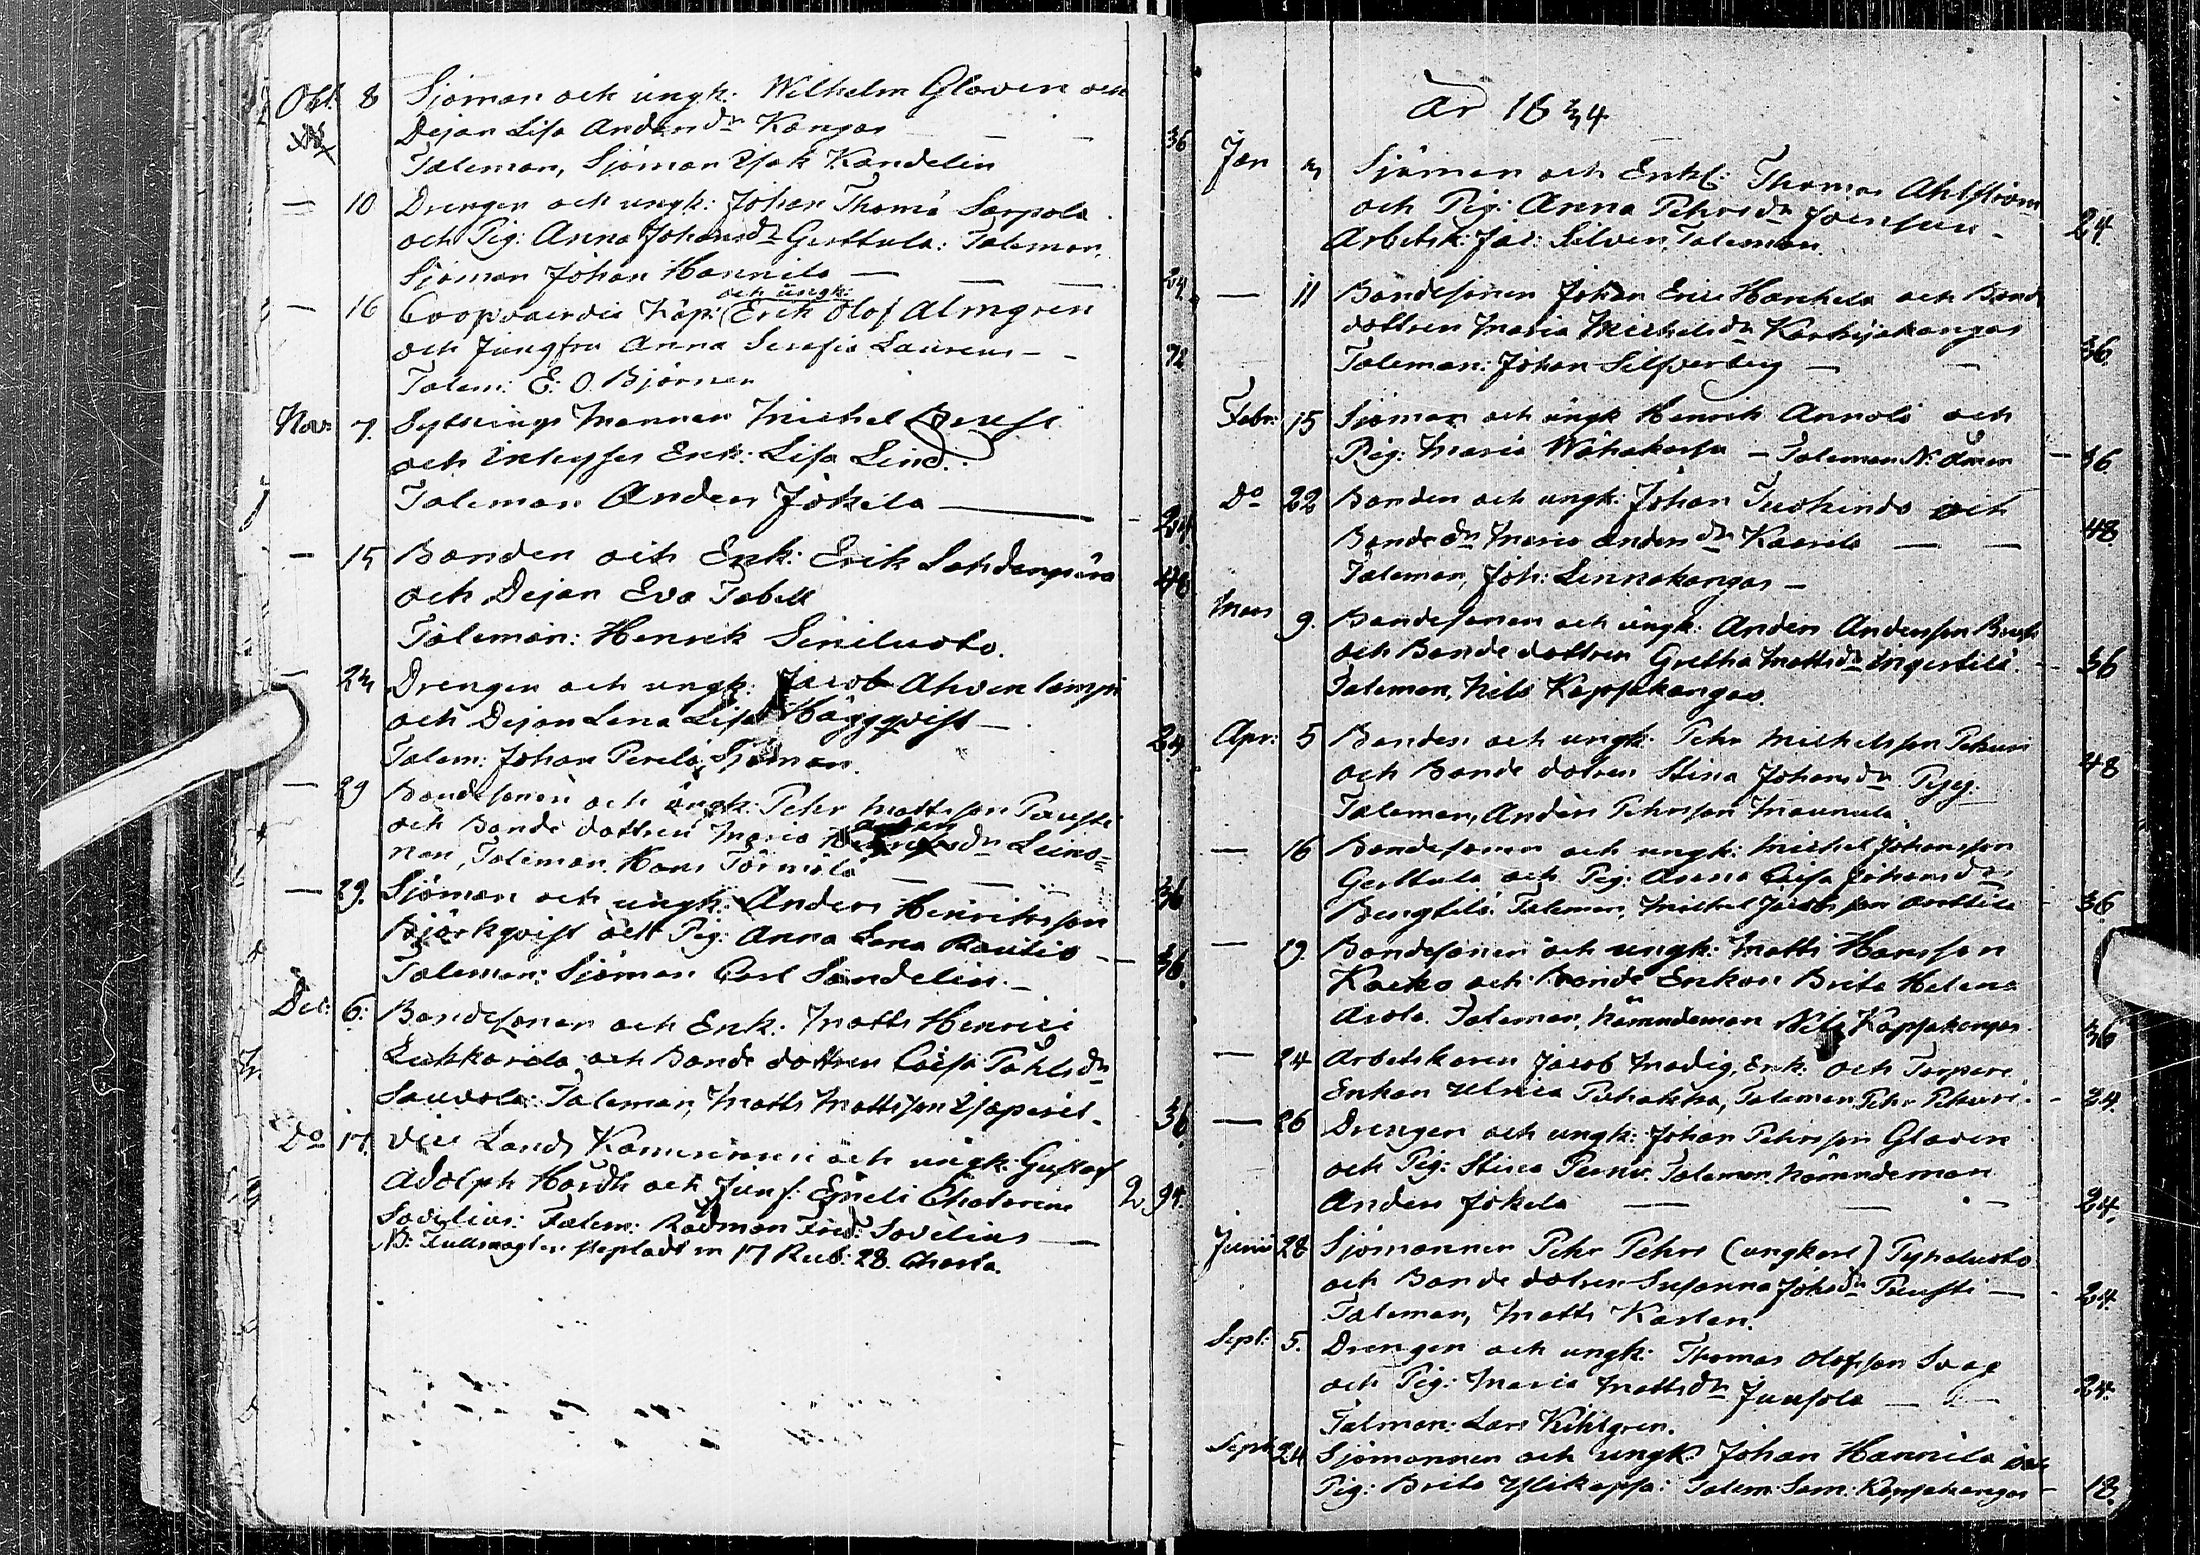 Oct: 8 Sjöman och ungk: Wilhelm Glaven och
Dejan Lisa Andersdr Kangas — — 36
Taleman, Sjöman Isak Kandelin
— 10 Drengen och ungk: Johan Thomæ Sarpola
och Pig: Anna Johansdr Gerttula: Taleman,
Sjöman Johan Hannila — — 24.
och ungk:
— 16 Coopvaerdie Kap: Erik Olof Almgren
och Jungfru Anna Serafia Laurens - - 72
Talem: E: O. Björner
Nov: 7. Sytnings Mannen Michel
och Inhyses Enk: Lisa Lind.
Taleman Anders Jokela — 24.
— 15 Bonden och Enk: Erik Sahdenperä
och Dejan Eva Tabell 48
Taleman: Henrik Siniluoto.
— 23 Drengen och ungk: Jacob Ahvenlampi
och Dejan Lena Lisa Häggqvist —
Talem: Johan Perelä, Sjöman. 24
— 29 Bondesonen och ungk: Pehr Mattsson
och Bonde dottren Maria Leino=
nen, Taleman Hans Törmälä — — 36
— 29. Sjöman och ungk: Anders Henriksson
Björkqvist och Pig: Anna Lena Rautio
Taleman: Sjöman Carl Sandelin. — 36.
Dec: 6: Bondesonen och Enk: Matts Henrici
Lukkarila och Bonde dottren Caisa Påhlsdr
Sauvola: Taleman, Matts Mattsson 36.
Do 17. Vice Lands Kamereraren och ungk: Gustaf
Adolph Hårdh och Junf: Emeli Chatarina 2 94.
Sovelius: Talem: Rådman Fred: Sovelius —
NB: Fullmagten stepladt m 17 Rub: 28. Charta.
År 1834
Jan 3 Sjöman och Enkl: Thomas Ahlström
och Pig: Anna Pehrsdr Joensuu - 24
Arbetsk: Jac: Silven, Taleman.
— 11 Bondesonen Johan Eric Hanhela och Bonde
dottren Maria Michelsdr Karhejakangas 36.
Taleman: Johan Silfverberg — —
Febr: 15 Sjöman och ungk Henrik Annola och
Pig: Maria Wähakarsu — Taleman N: — 36
Do 22 Bonden och ungk: Johan och 48.
Bondedr Maria Andersdr Kaarela — —
Taleman, Joh: Linnakangas —
Mars 9. Bondesonen och ungk: Anders Andersson
och Bonde dottren Gretha Mattsdr - 36
Taleman, Nils Kapsakangas.
Apr: 5 Bonden och ungk: Pehr Michelsson Pehuri
och Bonde dotren Stina Johansdr 48
Taleman, Anders Pehrsson Maunula
— 16 Bondesonen och ungk: Michel Johansson
Gerttula och Pig: Anna Caisa Johansdr
Bengtilä. Taleman, Michel Jacobsson Anttila - 36
— 19. Bondesonen och ungk: Matts Hansson
Kaako och Bonde Enkan Brita Helena
Asola. Taleman, Nämndeman Nils Kapsakangas 36
— 24 Arbetskaren Jacob Modig, Enk: och Torpare
Enkan Ulrica Pehakka, Taleman Pehr Pehuri. - 24.
— 26 Drengen och ungk: Johan Pehrsson Glaven
och Pig: Stina Taleman Nämndeman
Anders Jokela — — 24.
Junii 28 Sjömannen Pehr Pehrs (ungkarl) Pyhäluoto
och Bonde dotren Susanna Johsdr — 24.
Taleman, Matts Karlen.
Sept: 5. Drengen och ungk: Thomas Olofsson Svag
och Pig: Maria Mattsdr Juusola — 24.
Talman: Lars Kihlgren.
Sept. 24 Sjömannen och ungk: Johan Hannila och
Pig: Brita Ylikapsa: Talem: Sam: Kapsakangas — 18.